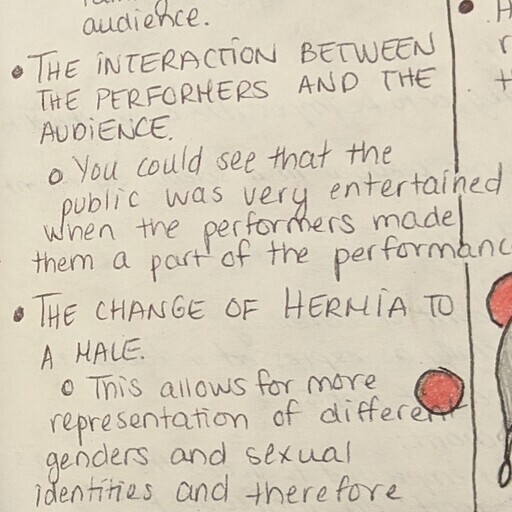 audience.
• THE INTERACTION BETWEEN
THE PERFORMERS AND THE
AUDIENCE.
o You could see that the
public was very entertained
when the performers made
them a part of the performanc
• THE CHANGE OF HERMIA TO
A MALE.
o This allows for more
representation of different
genders and sexual
identities and therefore